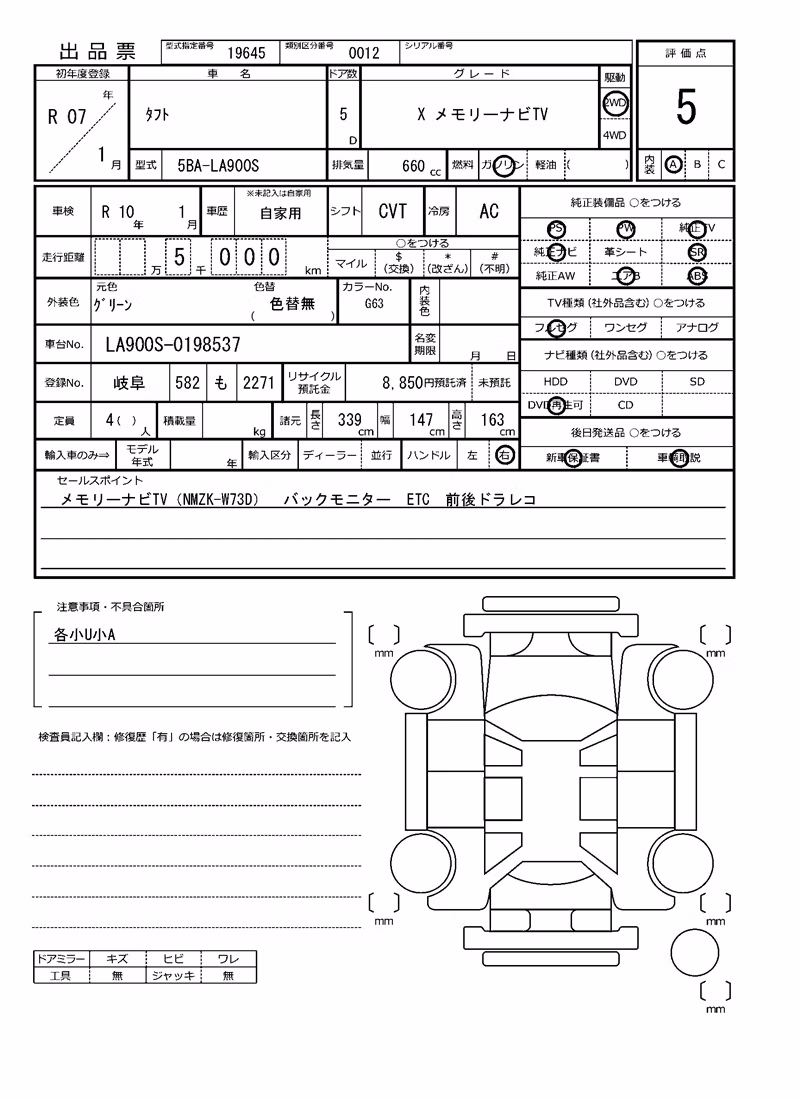 出品票 型式指定番号 19645 類別区分番号 0012 シリアル番号
評価点
5
内装 A B C
初年度登録 車名 ドア数 グレード 駆動
R 07 年 1 月
タフト 5 D X メモリーナビTV 2WD 4WD
型式 5BA-LA900S 排気量 660 cc 燃料 ガソリン 軽油 ( )
車検 R 10 年 1 月 車歴 ※未記入は自家用 自家用 シフト CVT 冷房 AC
走行距離 万 5 千 0 0 0 km
○をつける
マイル $ (交換) * (改ざん) # (不明)
外装色 元色 グリーン 色替 ( 色替無 ) カラーNo. G63 内装色
車台No. LA900S-0198537 名変期限 月 日
登録No. 岐阜 582 も 2271 リサイクル預託金 8,850円預託済 未預託
定員 4 ( ) 人 積載量 kg 諸元 長さ 339 cm 幅 147 cm 高さ 163 cm
輸入車のみ⇒ モデル年式 年 輸入区分 ディーラー 並行 ハンドル 左 右
純正装備品 ○をつける
PS PW 純正TV
純正ナビ 革シート SR
純正AW エアB ABS
TV種類(社外品含む)○をつける
フルセグ ワンセグ アナログ
ナビ種類(社外品含む)○をつける
HDD DVD SD
DVD再生可 CD
後日発送品 ○をつける
新車保証書 車輌取説
セールスポイント
メモリーナビTV(NMZK-W73D) バックモニター ETC 前後ドラレコ
注意事項・不具合箇所
各小U小A
検査員記入欄:修復歴「有」の場合は修復箇所・交換箇所を記入
mm mm
mm mm
mm
ドアミラー キズ ヒビ ワレ
工具 無 ジャッキ 無